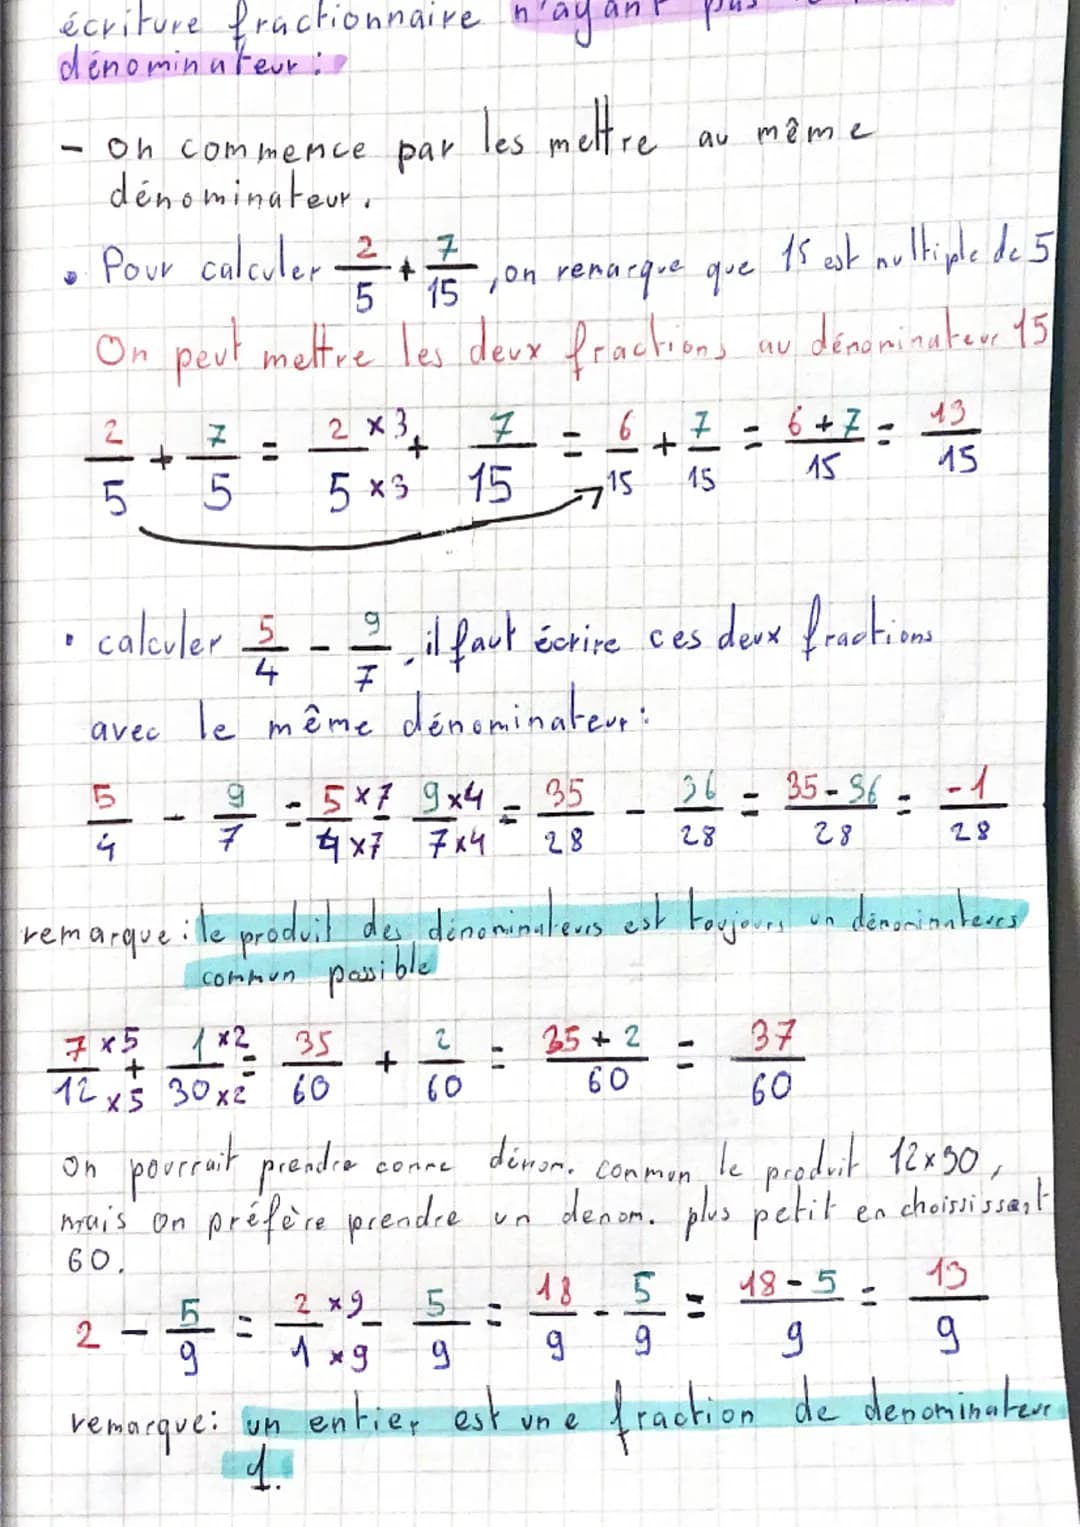 écriture fractionnaire n'ayant pas
dénominateur :
- On commence par les mettre au même
dénominateur.
• Pour calculer 2/5 + 7/15, on remarque que 15 est multiple de 5
On peut mettre les deux fractions au dénominateur 15
2/5 + 7/5 = 2 x3/5 x3 + 7/15 = 6/15 + 7/15 = 6+7/15 = 13/15
• calculer 5/4 - 9/7, il faut écrire ces deux fractions
avec le même dénominateur :
5/4 - 9/7 = 5x7/4x7 - 9x4/7x4 = 35/28 - 36/28 = 35-36/28 = -1/28
remarque : le produit des dénominateurs est toujours un dénominateurs
commun possible
7 x5/12 x5 + 1 x2/30 x2 = 35/60 + 2/60 = 35+2/60 = 37/60
On pourrait prendre comme dénom. commun le produit 12x30,
mais on préfère prendre un denom. plus petit en choississant
60.
2 - 5/9 = 2 x9/1 x9 - 5/9 = 18/9 - 5/9 = 18-5/9 = 13/9
remarque: un entier est une fraction de denominateur
1.